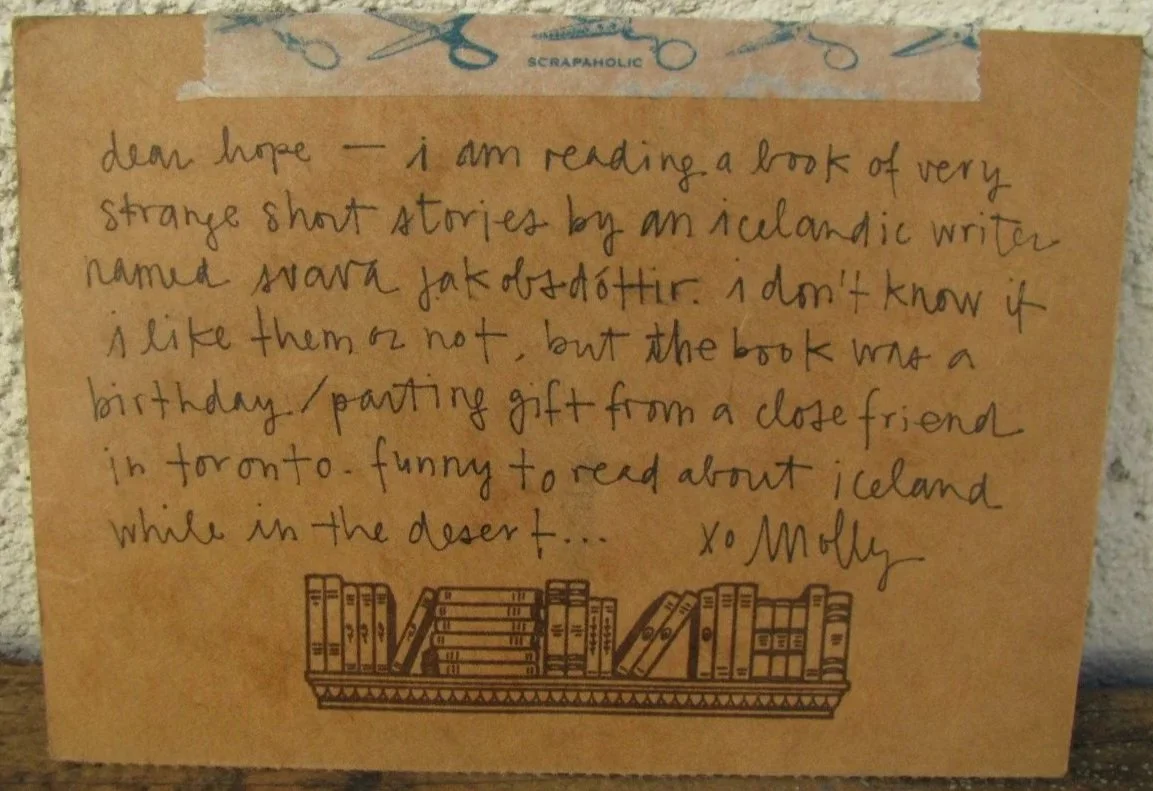 SCRAPAHOLIC
dear hope — i am reading a book of very
strange short stories by an icelandic writer
named svava jakobsdóttir. i don't know if
i like them or not, but the book was a
birthday/parting gift from a close friend
in toronto. funny to read about iceland
while in the desert... xo Molly